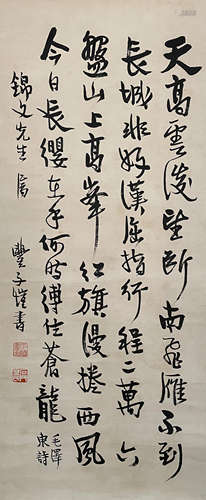 天高雲淡望断南飛雁不到
長城非好漢屈指行程二萬六
盤山上高峯紅旗漫捲西風
今日長纓在手何時縛住蒼龍
毛澤
東詩
錦文先生屬
豐子愷書